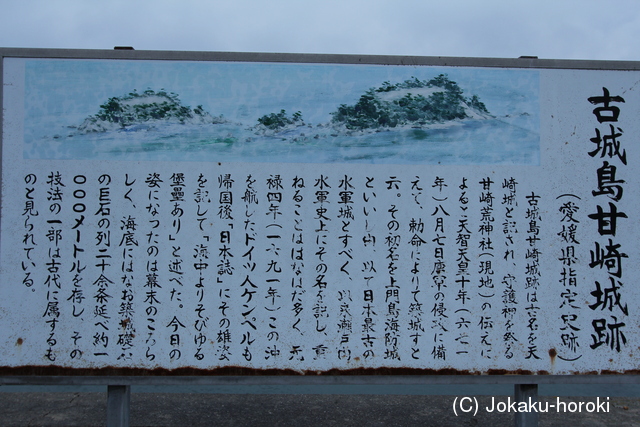 古城島甘崎城跡
（愛媛県指定史跡）
古城島甘崎城跡は古名を天
崎城と記され、守護神を祭る
甘崎荒神社（現地）の伝えに
よると天智天皇十年（六七一
年）八月七日唐軍の侵攻に備
えて、勅命によりて築城すと
云。その初名を上門島海防城
といいし由、以て日本最古の
水軍城とすべく、以来瀬戸内
水軍史上にその名を記し、重
ねることははなはだ多く、元
禄四年（一六九一年）この沖
を航したドイツ人ケンペルも
帰国後「日本誌」にその雄姿
を記して「海中よりそびゆる
堡塁あり」と述べた。今日の
姿になったのは幕末のころら
しく、海底にはなお築城礎石
の巨石の列二十余条延べ約一
〇〇〇メートルを存し、その
技法の一部は古代に属するも
のと見られている。
(C) Jokaku-horoki